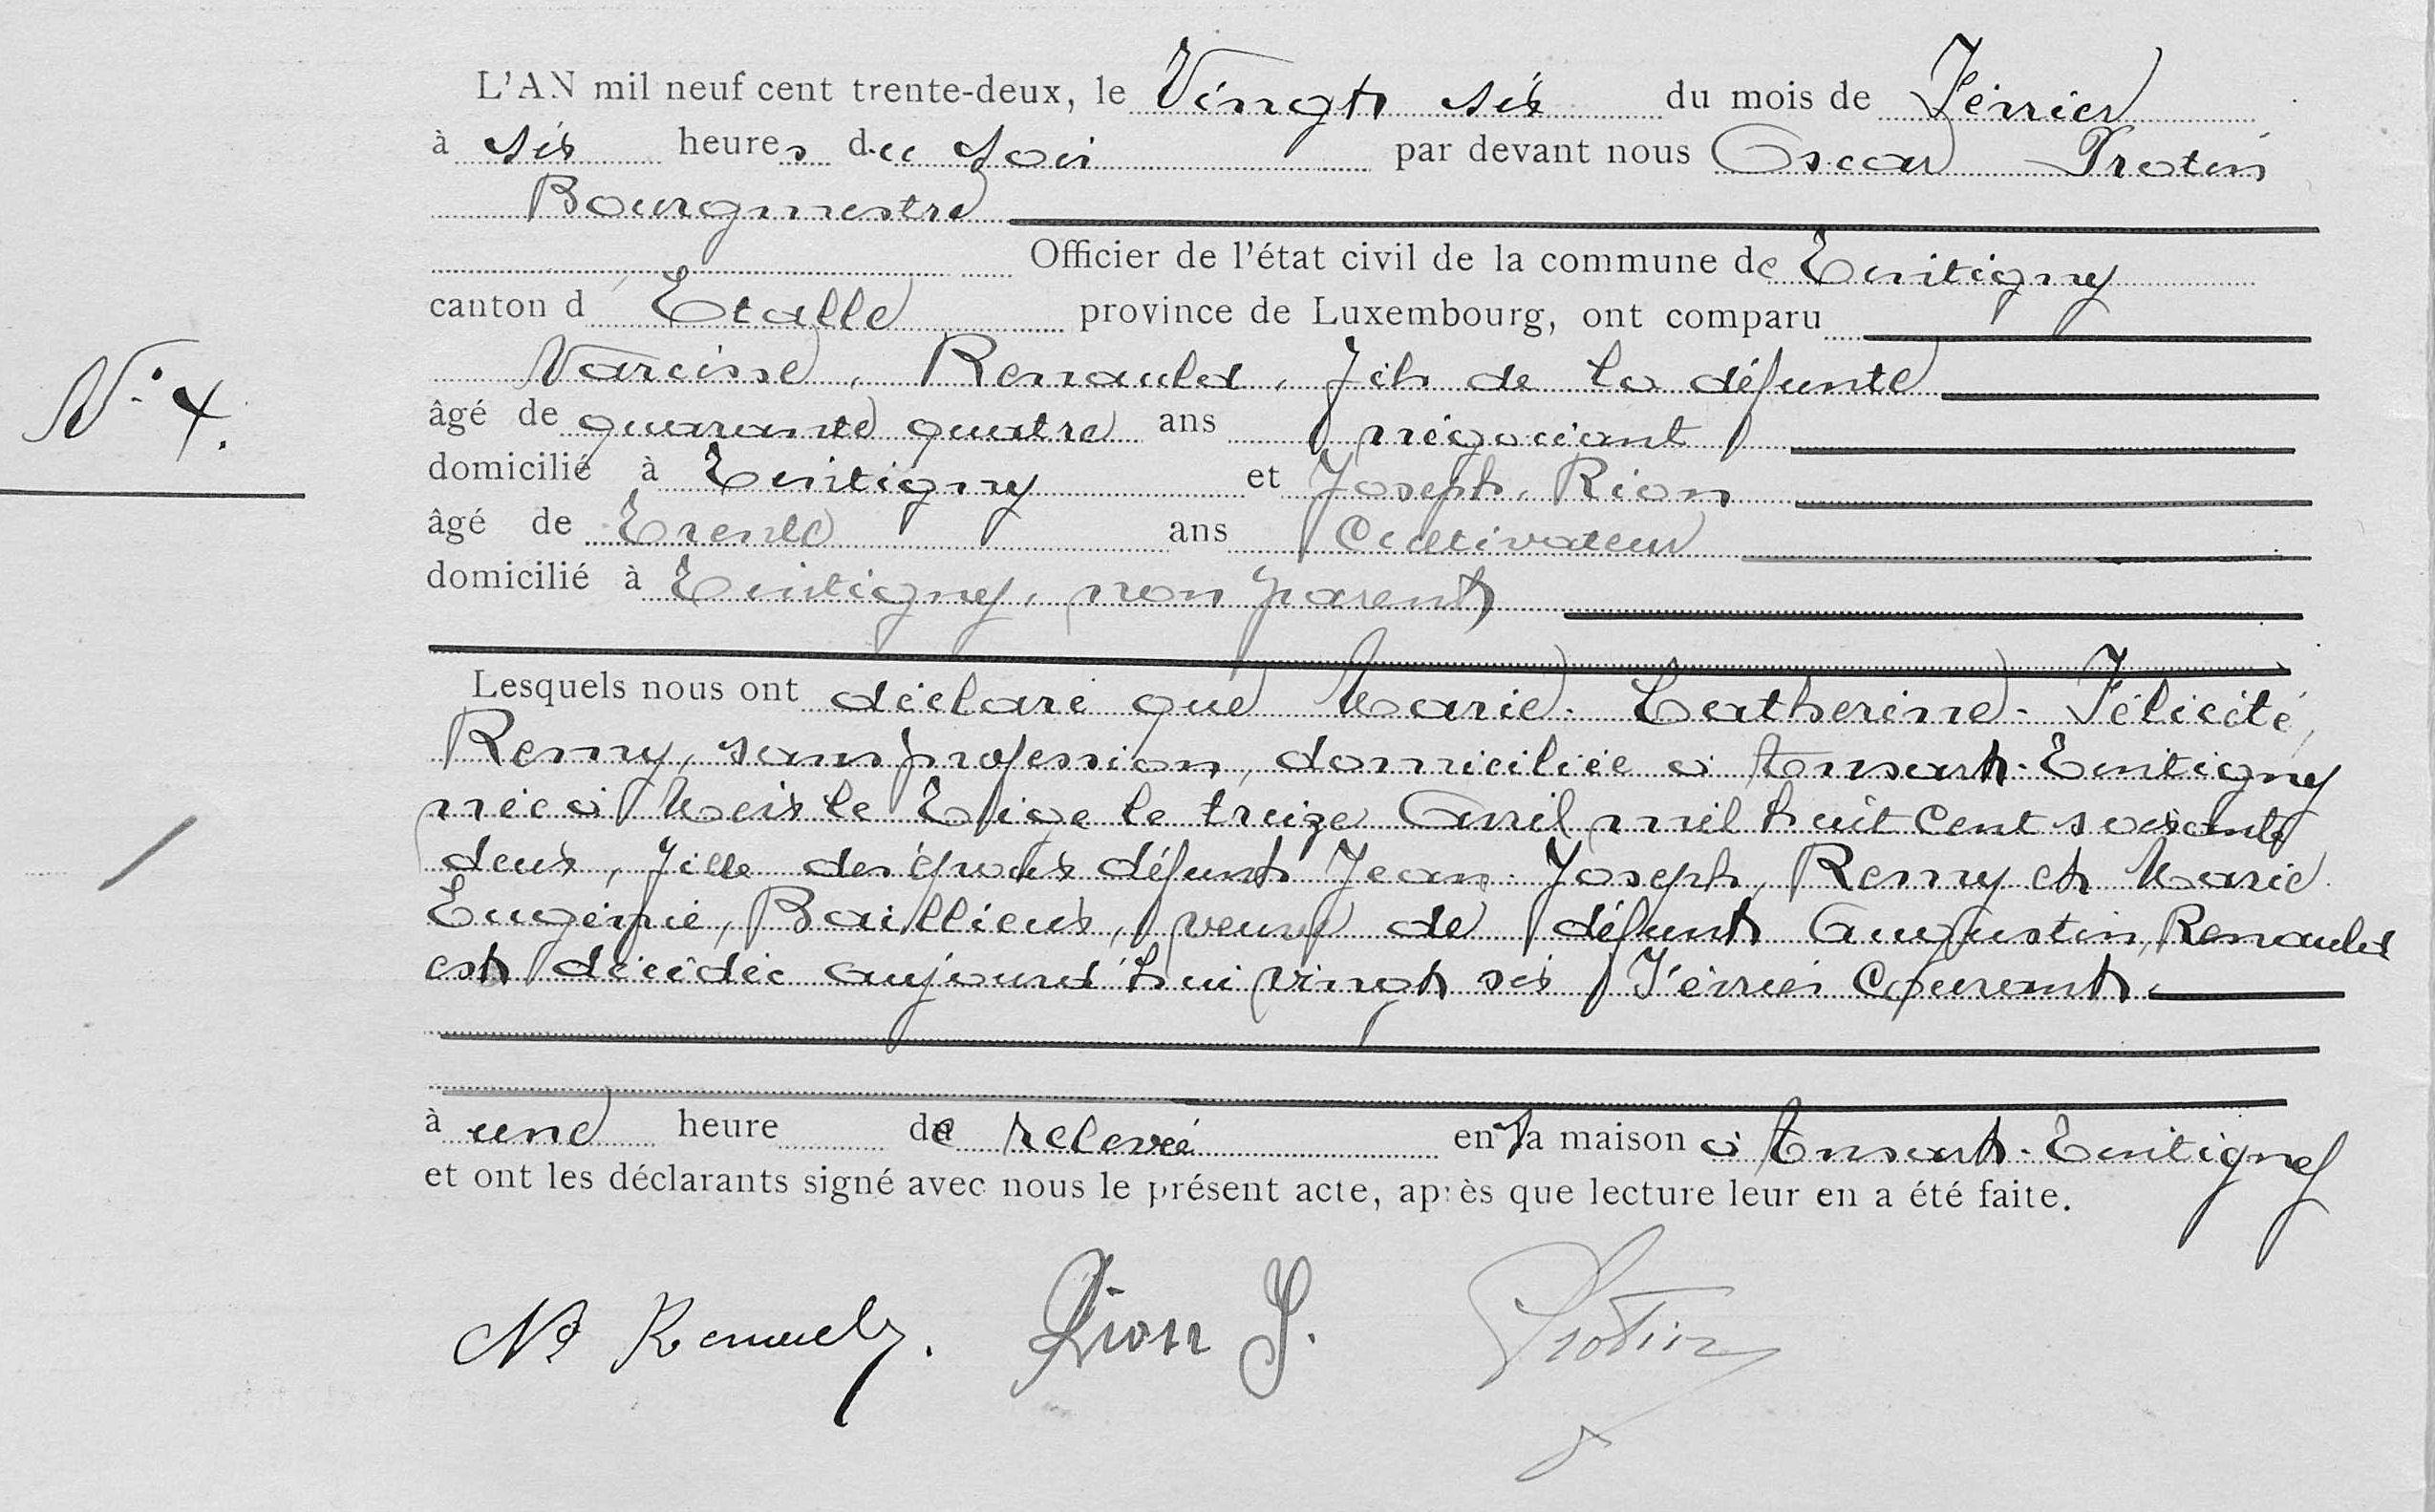 L'AN mil neuf cent trente-deux, le Vingt six du mois de Février
à six heures du soir par devant nous Oscar Protin
Bourgmestre
Officier de l'état civil de la commune de Tintigny
canton d'Etalle province de Luxembourg, ont comparu
Narcisse, Renauld, fils de la défunte
N° 4.
âgé de quarante quatre ans négociant
domicilié à Tintigny et Joseph, Rion
âgé de Trente ans Cultivateur
domicilié à Tintigny, non parent
Lesquels nous ont déclaré que Marie-Catherine-Félicité,
Remy, sans profession, domiciliée à Ansart-Tintigny
née à Meix le Tige le treize Avril mil huit Cent soixante
deux, fille des époux défunts Jean-Joseph, Remy et Marie
Eugénie, Baillieux, veuve de défunt Augustin, Renauld
est décédée aujourd'hui vingt six Février Courant.
à une heure de relevée en sa maison à Ansart-Tintigny
et ont les déclarants signé avec nous le présent acte, après que lecture leur en a été faite.
Rion J. Protin